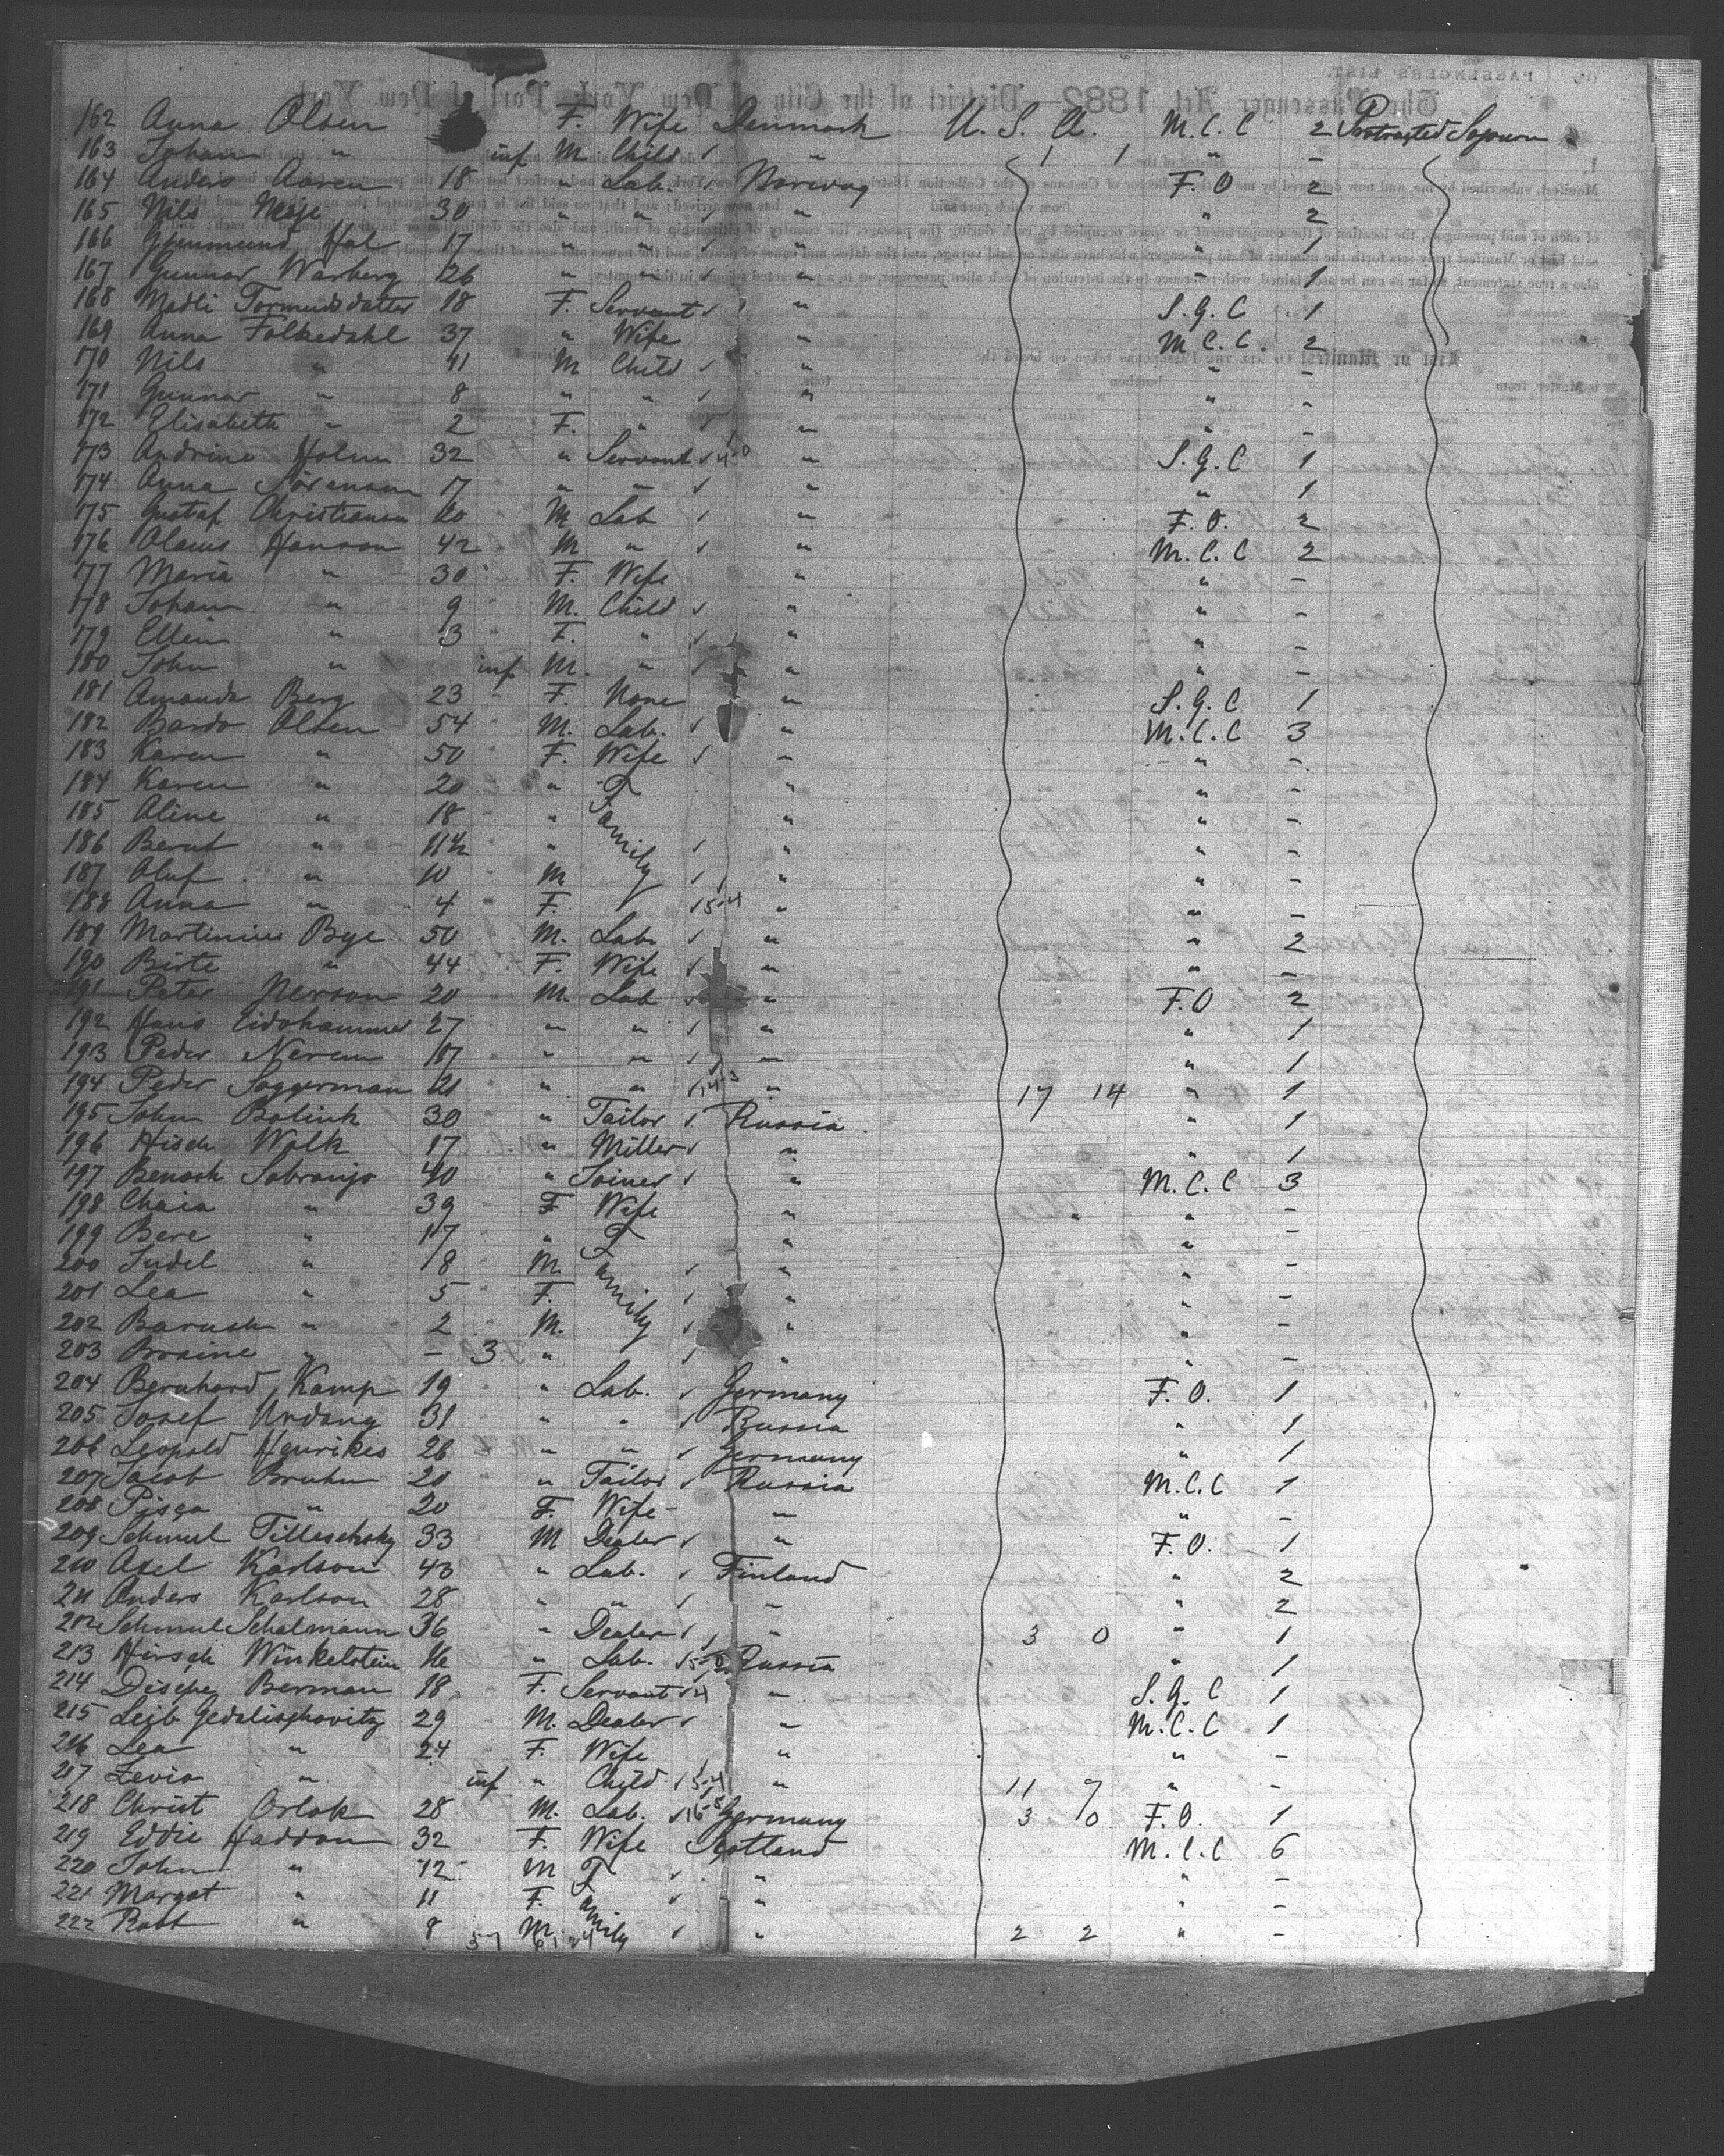 162 Anna Olsen F. Wife Denmark U. S. A. M. C. C 2 Protracted Sojourn
163 Johan " inf M Child " 1 1 " -
164 Anders Aaren 18 " Lab. Norway F. O 2
165 Nils 30 " " " " 2
166 Hol 17 " " " " 1
167 Gunnar Warberg 26 " " " " 1
168 Madli Tormundsdatter 18 F. Servant " S. G. C 1
169 Anna Folkedahl 37 " Wife " M. C. C. 2
170 Nils " M Child " " -
171 Gunnar " 8 " " " " -
172 Elisabeth " 2 F. " " " -
173 Andrine Holm 32 " Servant " S. G. C 1
174 Anna Sörensen 17 " " " " 1
175 Gustaf Christiansen M Lab " F. O. 2
176 Olaus Hanson 42 M " " M. C. C 2
177 Maria " 30 F. Wife " " -
178 Johan " 9 M. Child " " -
179 Ellen " 3 F. " " " -
180 John " inf M. " " " -
181 Amanda Berg 23 F. None " S. G. C 1
182 Bardo Olsen 54 M. Lab. " M. C. C 3
183 Karen " 50 F. Wife " " -
184 Karen " 20 " Family " " -
185 Aline " 18 " " " -
186 Berut " 11½ " " " -
187 Oluf " 10 M " " -
188 Anna " 4 F. 5-4 " " -
189 Martinius Bye 50 M. Lab. " " 2
190 Birte " 44 F. Wife " " -
191 Peter Nerson 20 M. Lab " F. O 2
192 Hans Eidshammer 27 " " " " 1
193 Peder Nerem 17 " " " " 1
194 Peder Soggerman 21 " " 14-3 " 17 14 " 1
195 John Bolink 30 " Tailor Russia " 1
196 Hisch Wolk 17 " Miller " " 1
197 Benoch Sobranjo 40 " Joiner " M. C. C 3
198 Chaia " 39 F Wife " " -
199 Bere " 17 " Family " " -
200 Judel " 18 M. " " -
201 Lea " 5 F. " " -
202 Baruch " 2 M. " " -
203 Braine " - 3 " " " -
204 Bernhard Kamp 19 " Lab. Germany F. O. 1
205 Josef Urdang 31 " " Russia " 1
206 Leopold Henrikes 26 " " Germany " 1
207 Jacob Bruhn 20 " Tailor Russia M. C. C 1
208 Pisga " 20 F. Wife " " -
209 Schmul Tilleschsky 33 M Dealer " F. O. 1
210 Axel Karlson 43 " Lab. Finland " 2
211 Anders Karlson 28 " " " " 2
212 Schmul Schalmann 36 " Dealer " 3 0 " 1
213 Hirsch Winkelstein 16 " Lab. Russia " 1
214 Berman 18 F. Servant " S. G. C 1
215 Leib Gedalischovitz 29 M. Dealer " M. C. C 1
216 Lea " 24 F. Wife " " -
217 Zevia " inf " Child 5-4 " 11 7 " -
218 Christ Orlok 28 M. Lab. Germany 3 0 F. O. 1
219 Eddie Haddon 32 F. Wife Scotland M. C. C 6
220 John " 12 M Family " " -
221 Margot " 11 F. " " -
222 Robt " 8 M. " 2 2 " -